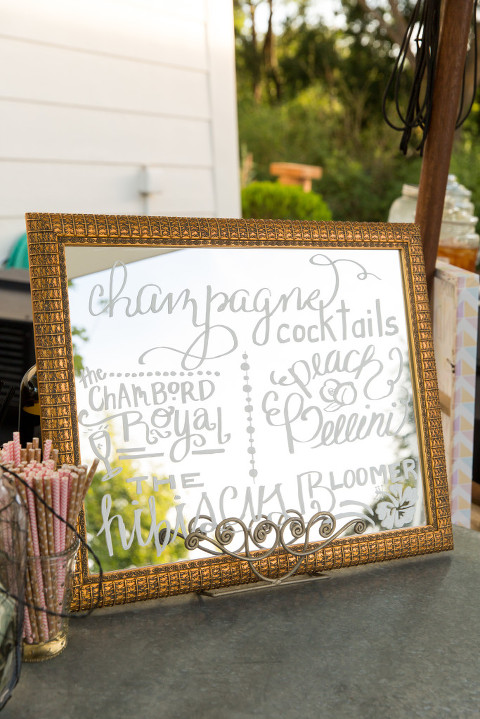 champagne
cocktails
the
CHAMBORD
Royal
peach
Bellini
THE
hibiscus BLOOMER